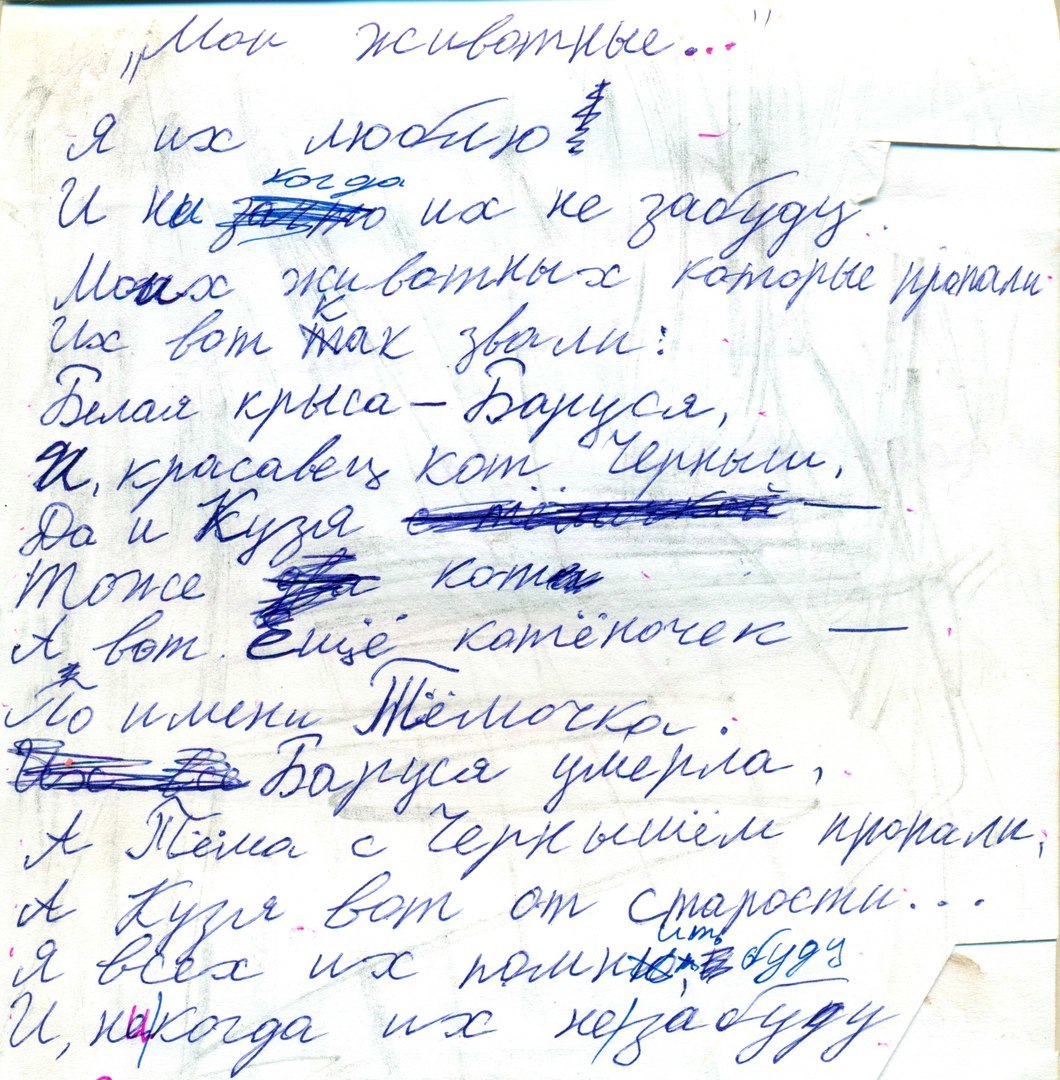 „Мои животные..."
Я их люблю
И на когда их не забуду..
Моих животных которые пропали
Их вот как звали:
Белая крыса – Баруся,
И, красавец кот Черныш,
Да и Кузя —
Тоже кот
А вот ещё котёночек —
По имени Тёмочка.
Баруся умерла,
А Тёма с Чернышём пропали,
А Кузя вот от старости...
Я всех их помнить буду
И, никогда их не/забуду